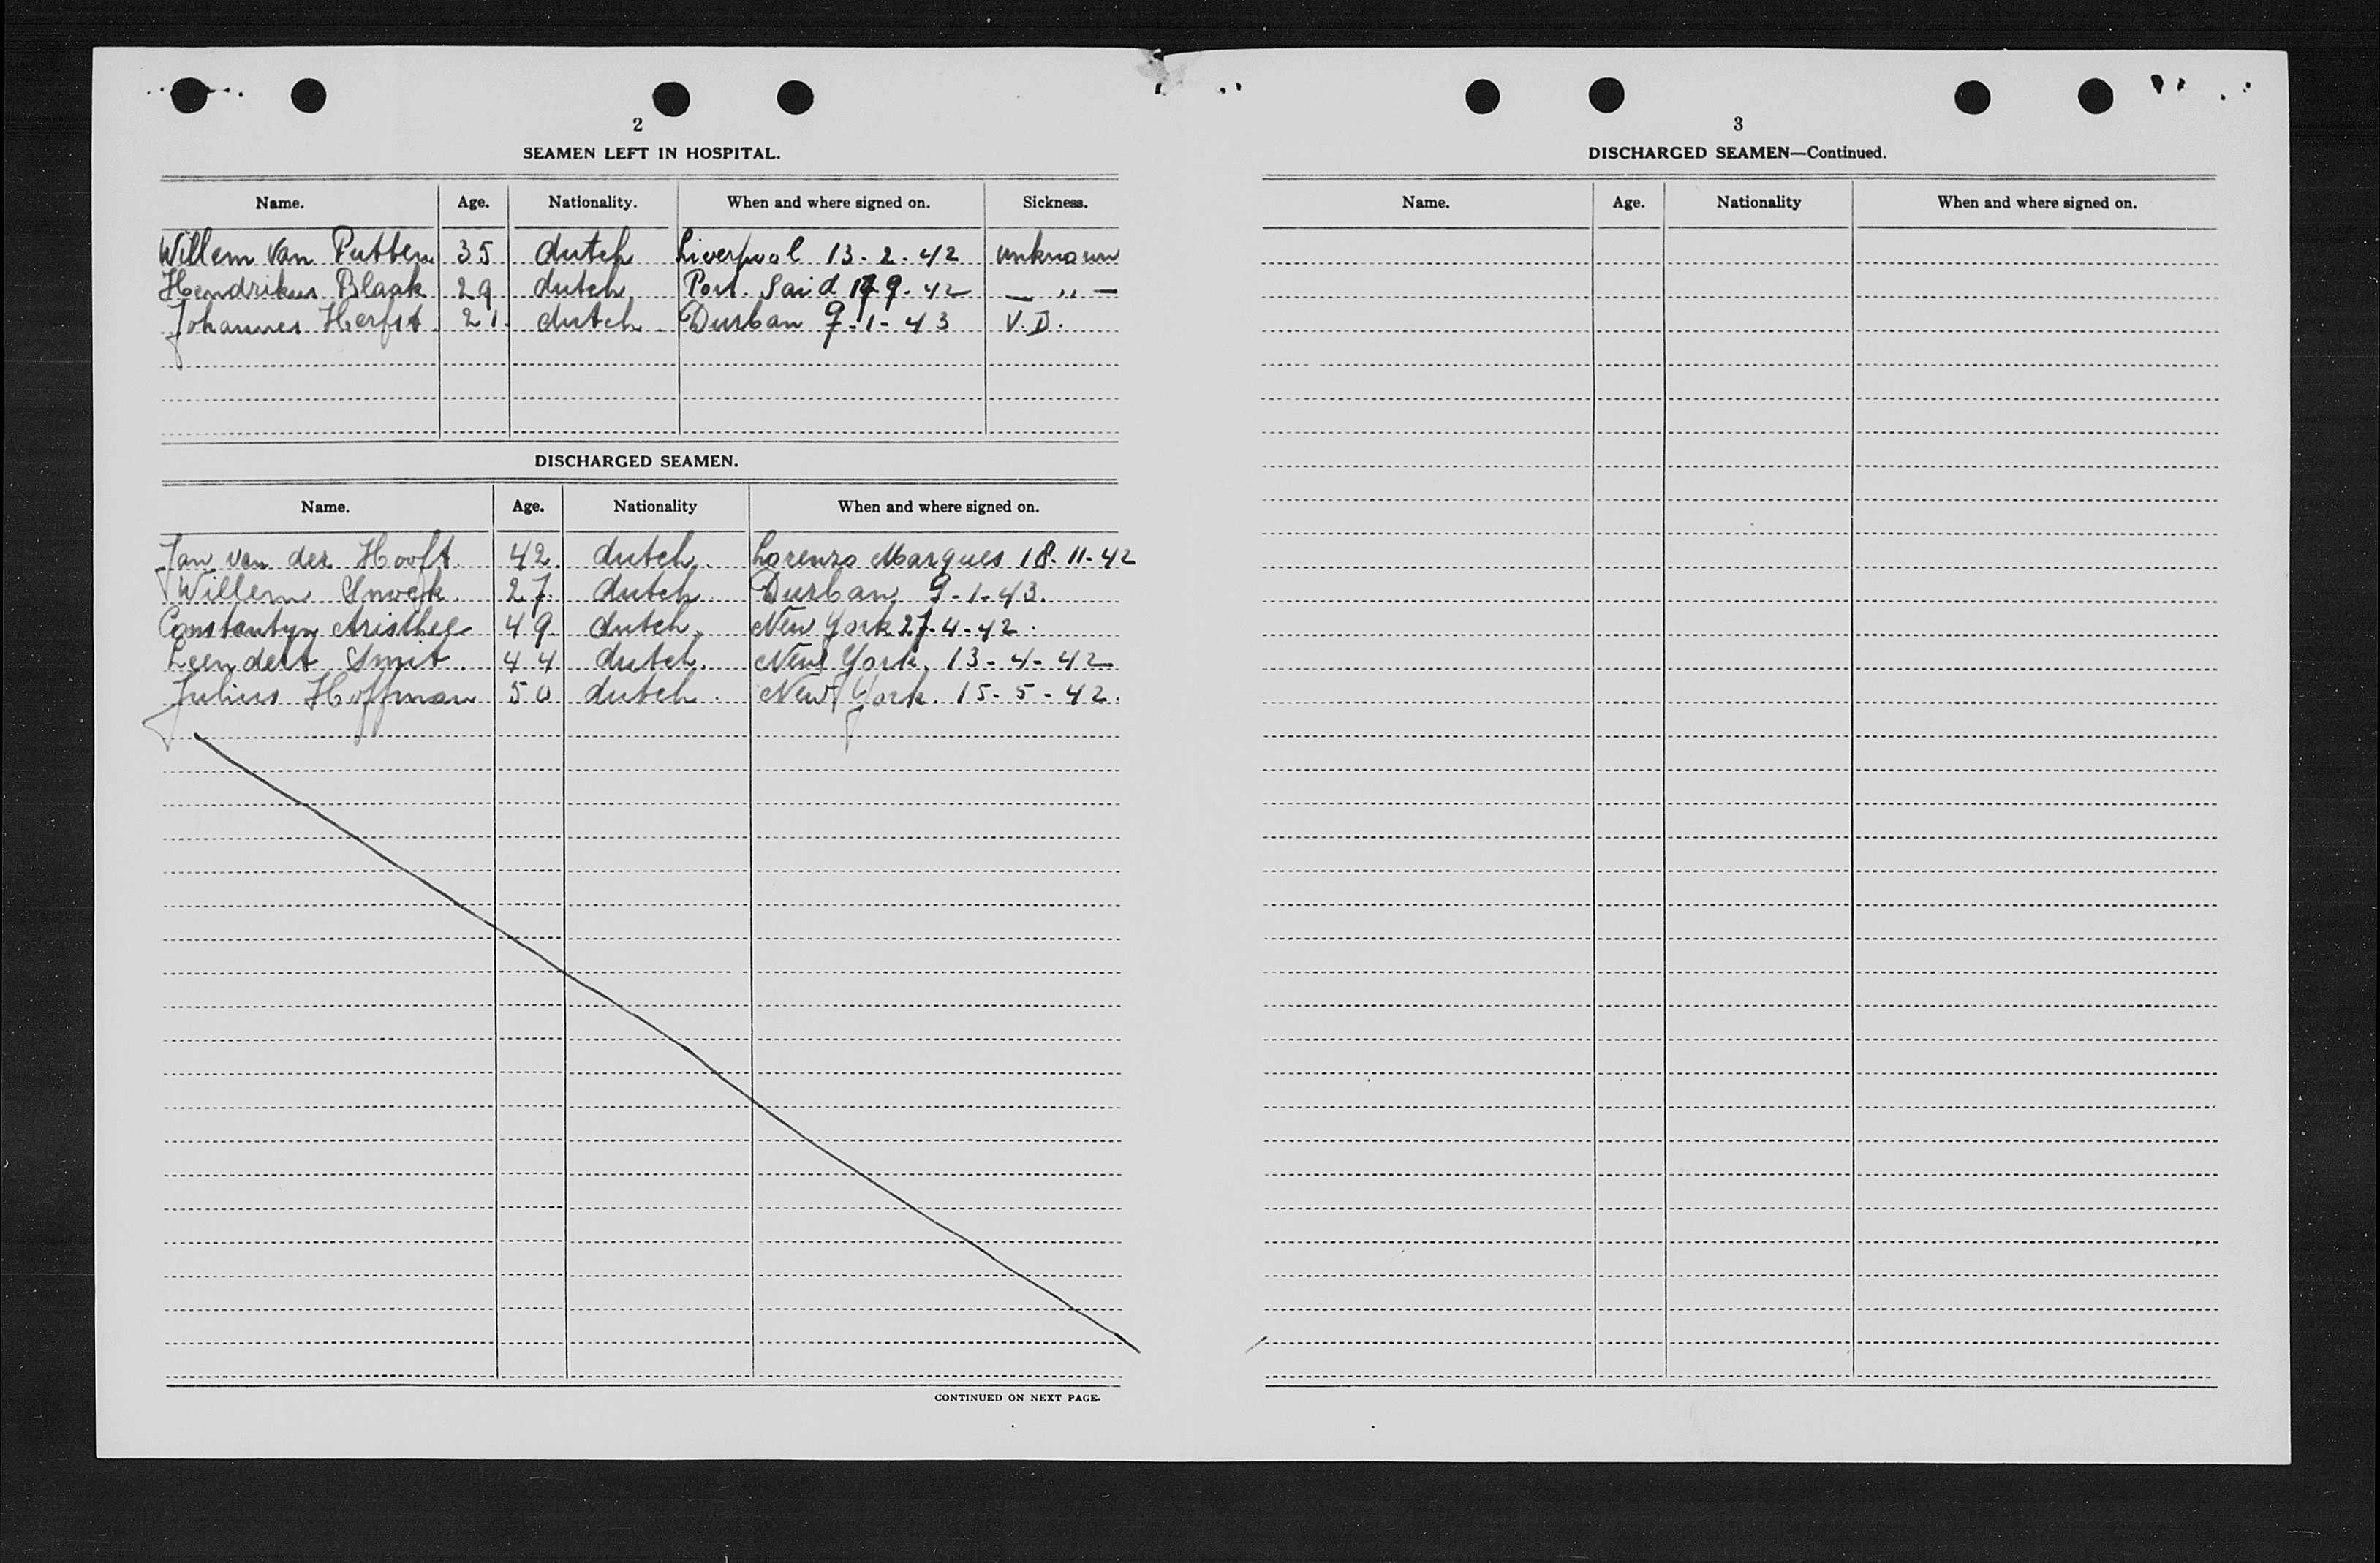 2
SEAMEN LEFT IN HOSPITAL.
Name. Age. Nationality. When and where signed on. Sickness.
Willem Van Putten 35 dutch Liverpool 13.2.42 unknown
Hendrikus Blaak 29 dutch Port. Said 9.42 — ,, —
Johannes Herfst 21. dutch Durban 9-1-43 V.D.
DISCHARGED SEAMEN.
Name. Age. Nationality When and where signed on.
Jan van der Hooft 42. dutch. Lorenzo Marques 18.11-42
Willem Snoek. 27. dutch Durban 9-1-43.
Constantyn 49 dutch. New York 27.4-42.
Leendert Smit. 44 dutch. New York. 13-4-42
Julius Hoffman 50 dutch. New York. 15-5-42.
CONTINUED ON NEXT PAGE.
3
DISCHARGED SEAMEN—Continued.
Name. Age. Nationality When and where signed on.